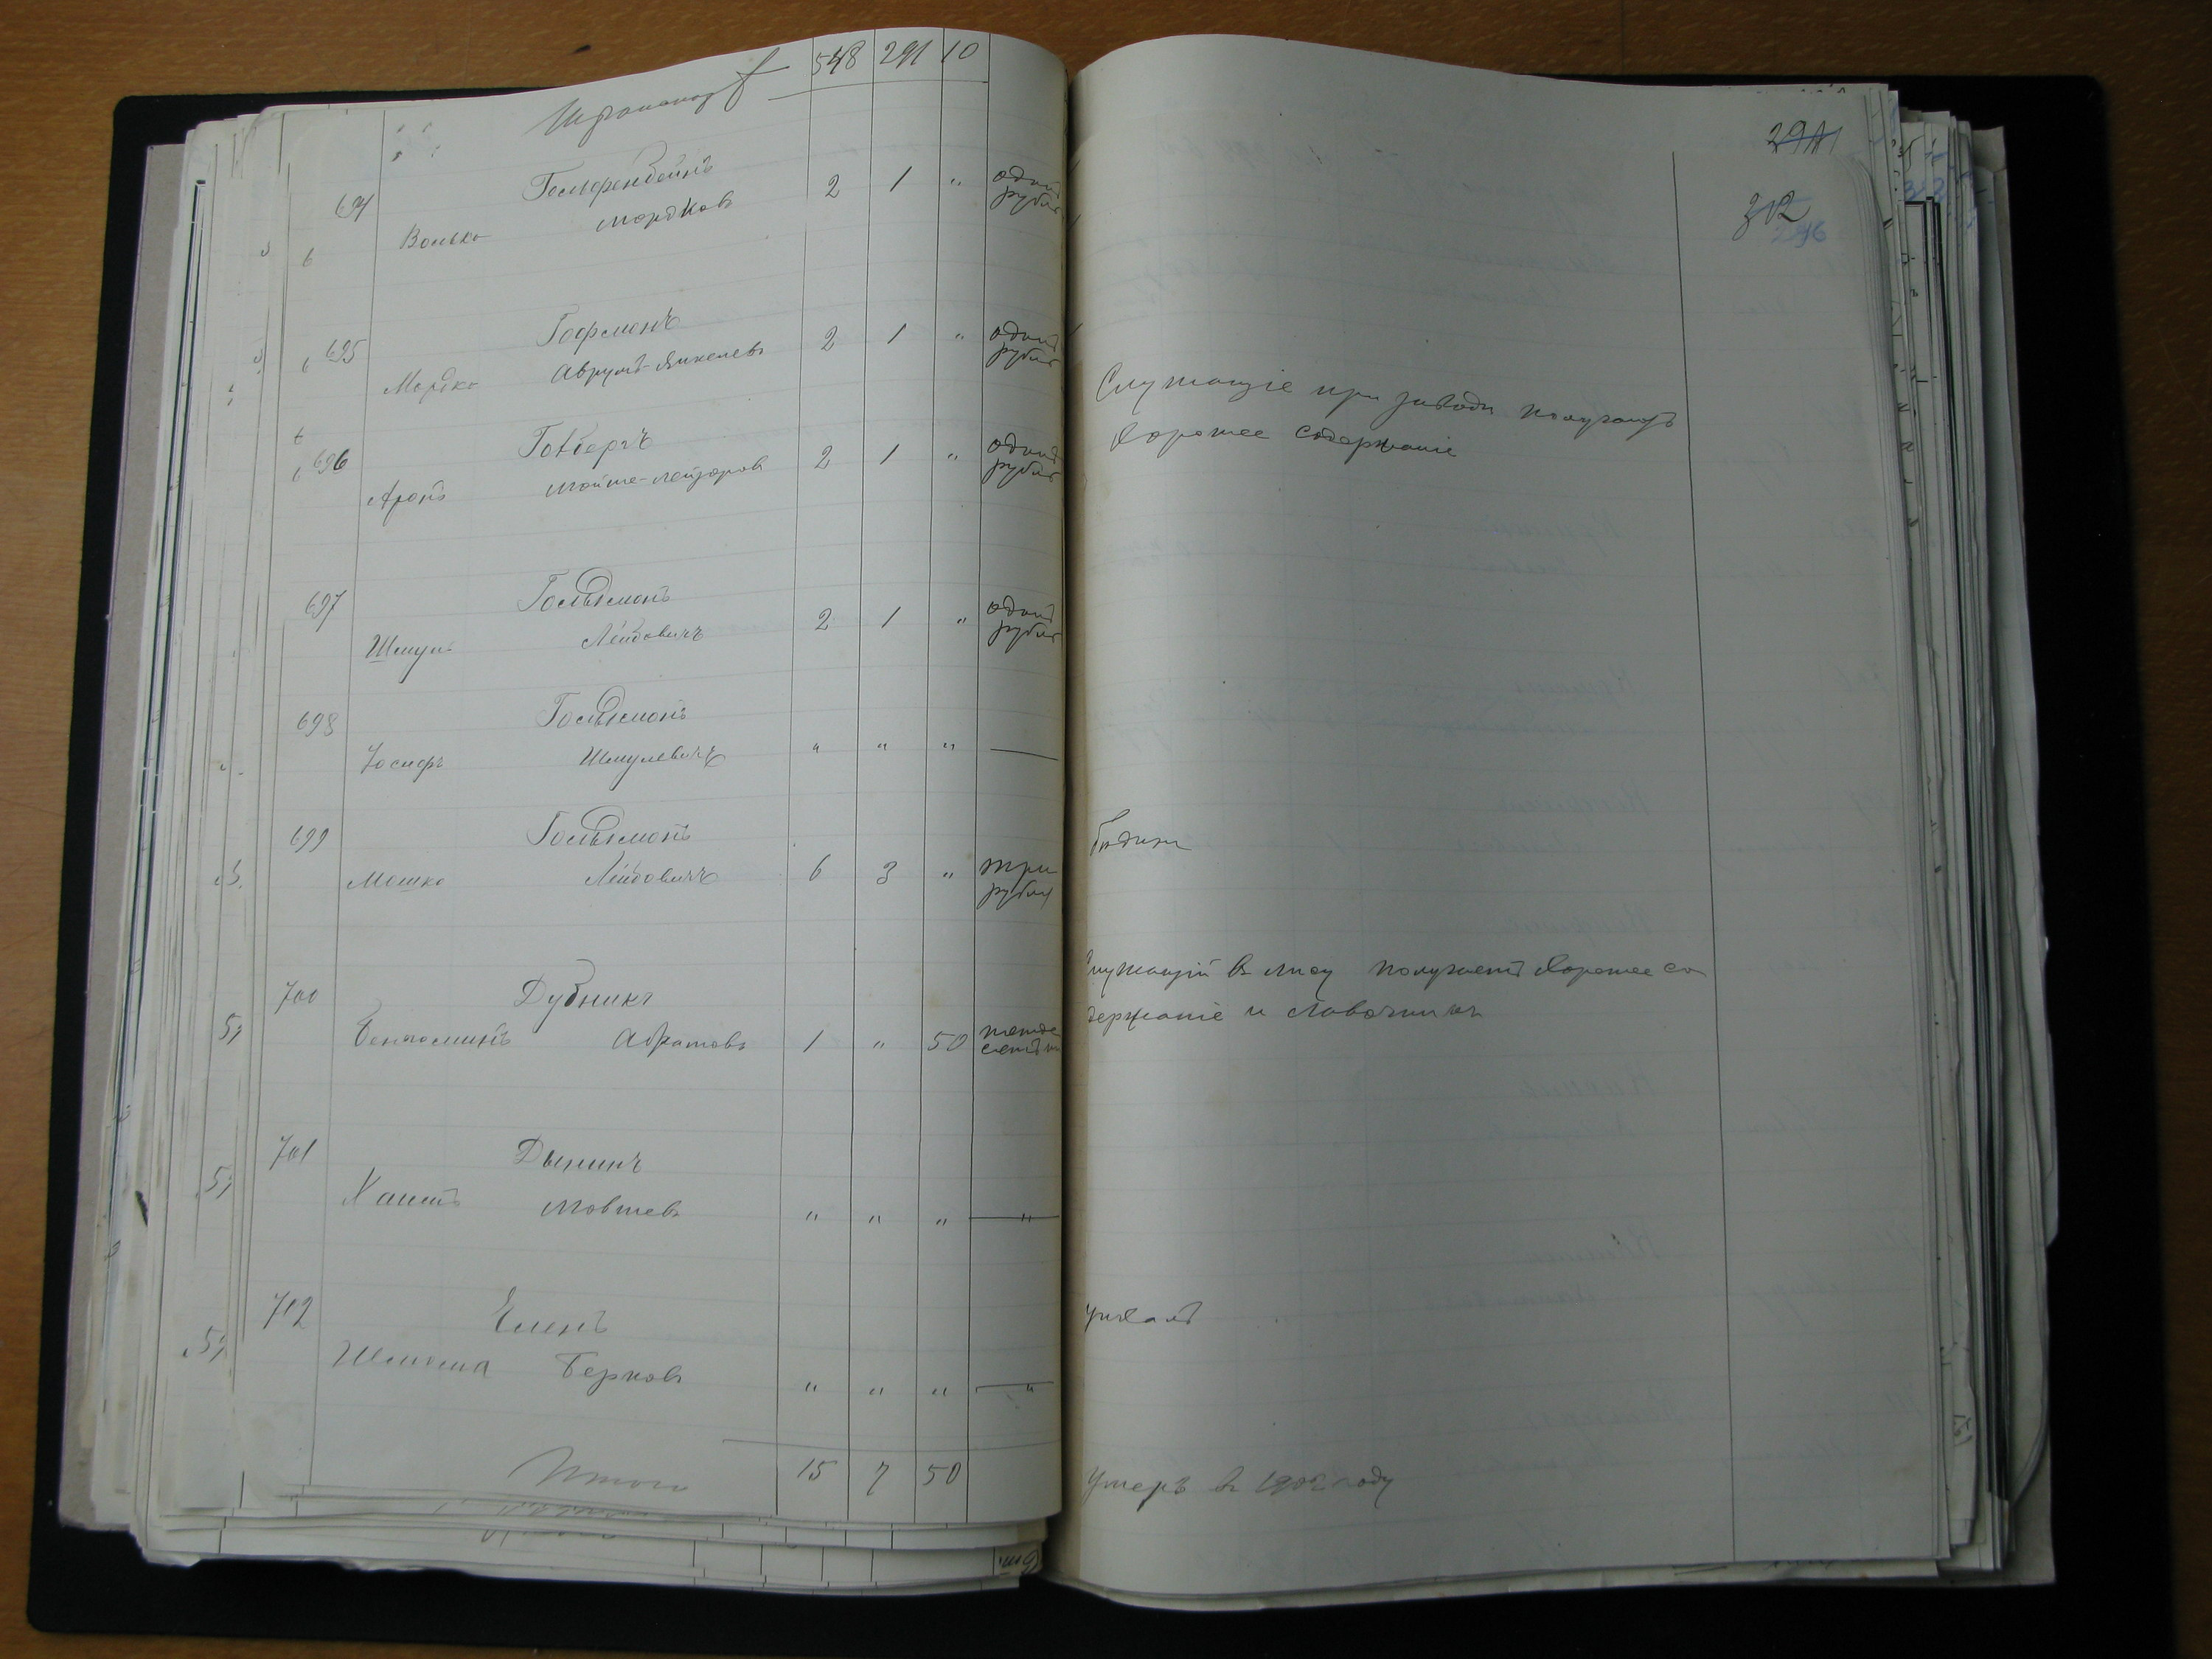 548 291 10
694 Гольфенбейнъ 2 1 " одинъ
рубль
Волько Мордковъ
695 Гофманъ 2 1 " одинъ
рубль
Мордко Аврумъ-Янкелевъ
696 Готбергъ 2 1 " одинъ
рубль
Аронъ Мойше-Лейзоровъ
697 Гольдманъ 2 1 " одинъ
рубль
Шмуль Лейбовичъ
698 Гольдманъ
Іосифъ Шмулевичъ " " " —
699 Гольдманъ
Мошко Лейбовичъ 6 3 " три
рубля
700 Дубникъ
Беньоминъ Абрамовъ 1 " 50
701 Дынинъ
Хаимъ Мовшевъ " " " "
702 Еленъ
Шлиома Берковъ " " " "
Итого 15 7 50
312
296
Служащіе при заводѣ получаютъ
хорошее содержаніе
бѣдный
Служащій въ лѣсу получаетъ хорошее со
держаніе и лавочникъ
уѣхалъ
Умеръ въ 1902 году